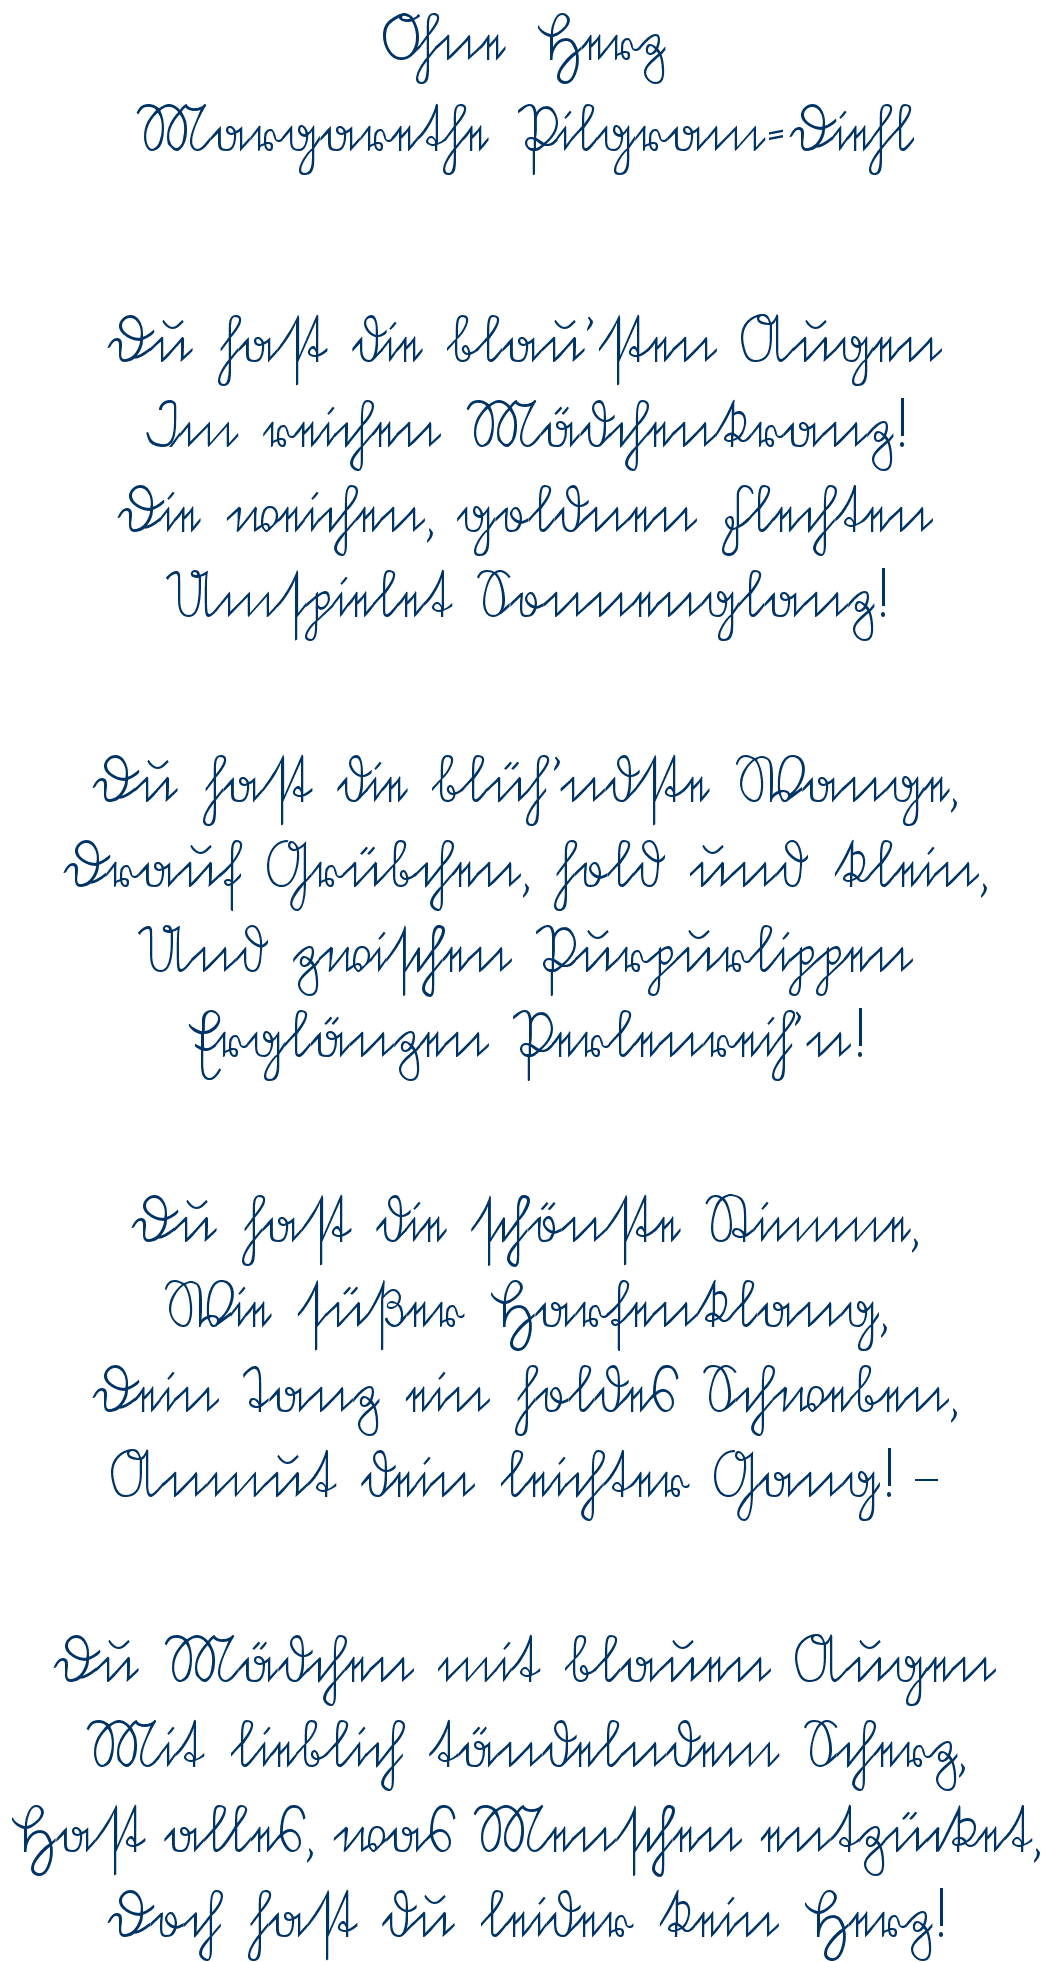 Ohne Herz
Margarethe Pilgram=Diehl
Du hast die blau'sten Augen
Im reichen Mädchenkranz!
Die weichen, goldnen Flechten
Umspielet Sonnenglanz!
Du hast die blüh'ndste Wange,
Drauf Grübchen, hold und klein,
Und zwischen Purpurlippen
Erglänzen Perlenreih'n!
Du hast die schönste Stimme,
Wie süßer Harfenklang,
Dein Tanz ein holdes Schweben,
Anmut dein leichter Gang! –
Du Mädchen mit blauen Augen
Mit lieblich tändelndem Scherz,
Hast alles, was Menschen entzücket,
Doch hast du leider kein Herz!